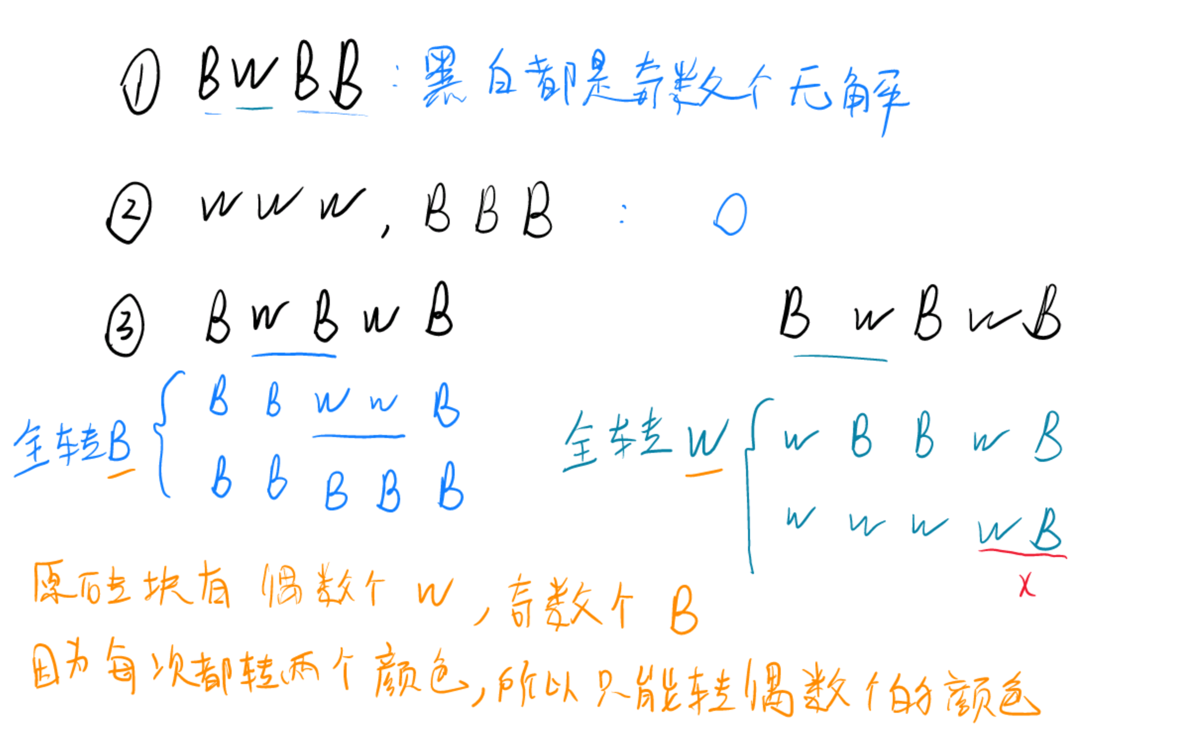 ① B W B B : 黑白都是奇数个无解
② W W W , B B B : 0
③ B W B W B
B W B W B
全转B
B B W W B
B B B B B
全转W
W B B W B
W W W W B
x
原砖块有 偶数个 W , 奇数个 B
因为每次都转两个颜色,所以只能转偶数个的颜色